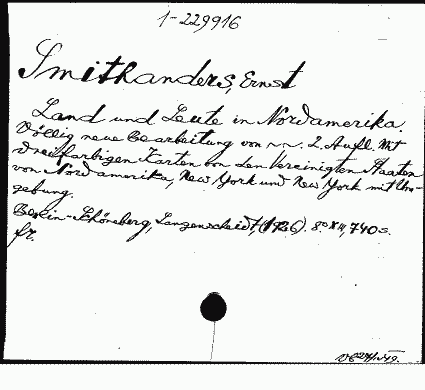 1-229916
Smithanders, Ernst
Land und Leute in Nordamerika.
Völlig neue Bearbeitung von n.n. 2. Aufl. Mit
dreifarbigen Karten von den Vereinigten Staaten
von Nordamerika, New York und New York mit Um-
gebung.
Berlin-Schöneberg, Langenscheidt, (1926). 8° XII, 740 S.
fr.